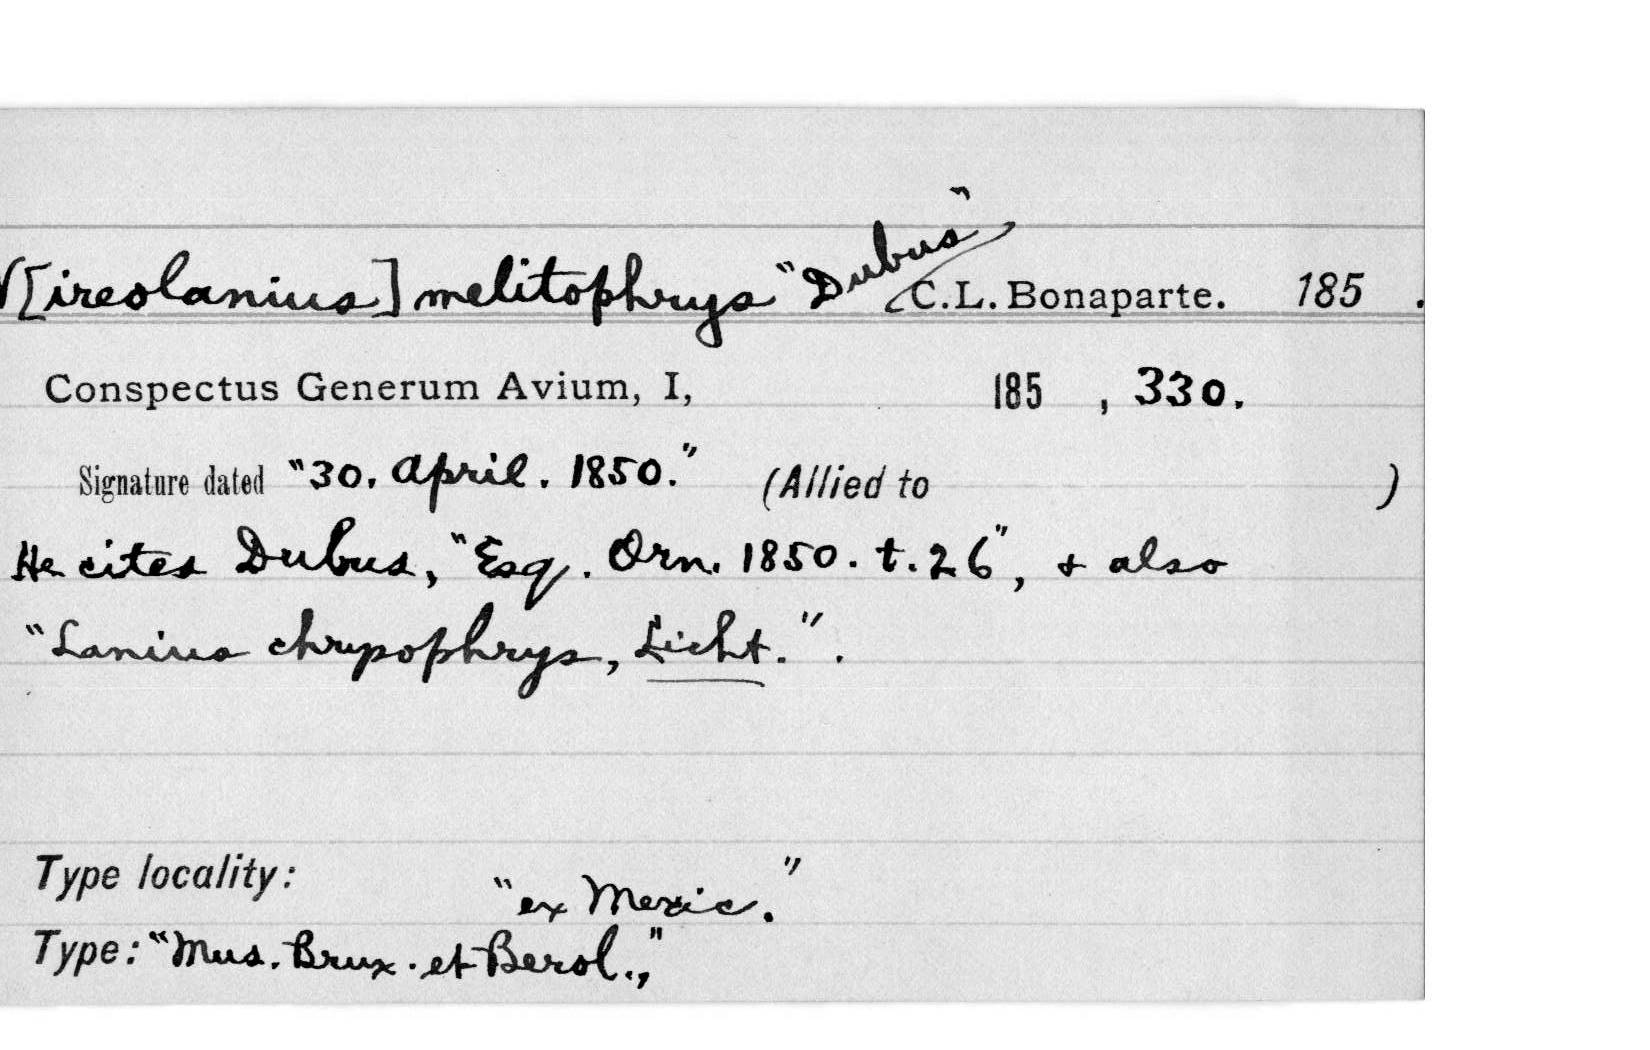 V[ireolanius] melitophrys "Dubus" C.L. Bonaparte. 185 .
Conspectus Generum Avium, I, 185 , 330.
Signature dated "30. April. 1850." (Allied to )
He cites Dubus, "Esq. Orn. 1850. t. 26", & also
"Lanius chrysophrys, Licht." .
Type locality: "ex Mexic."
Type: "Mus. Brux. et Berol.,"